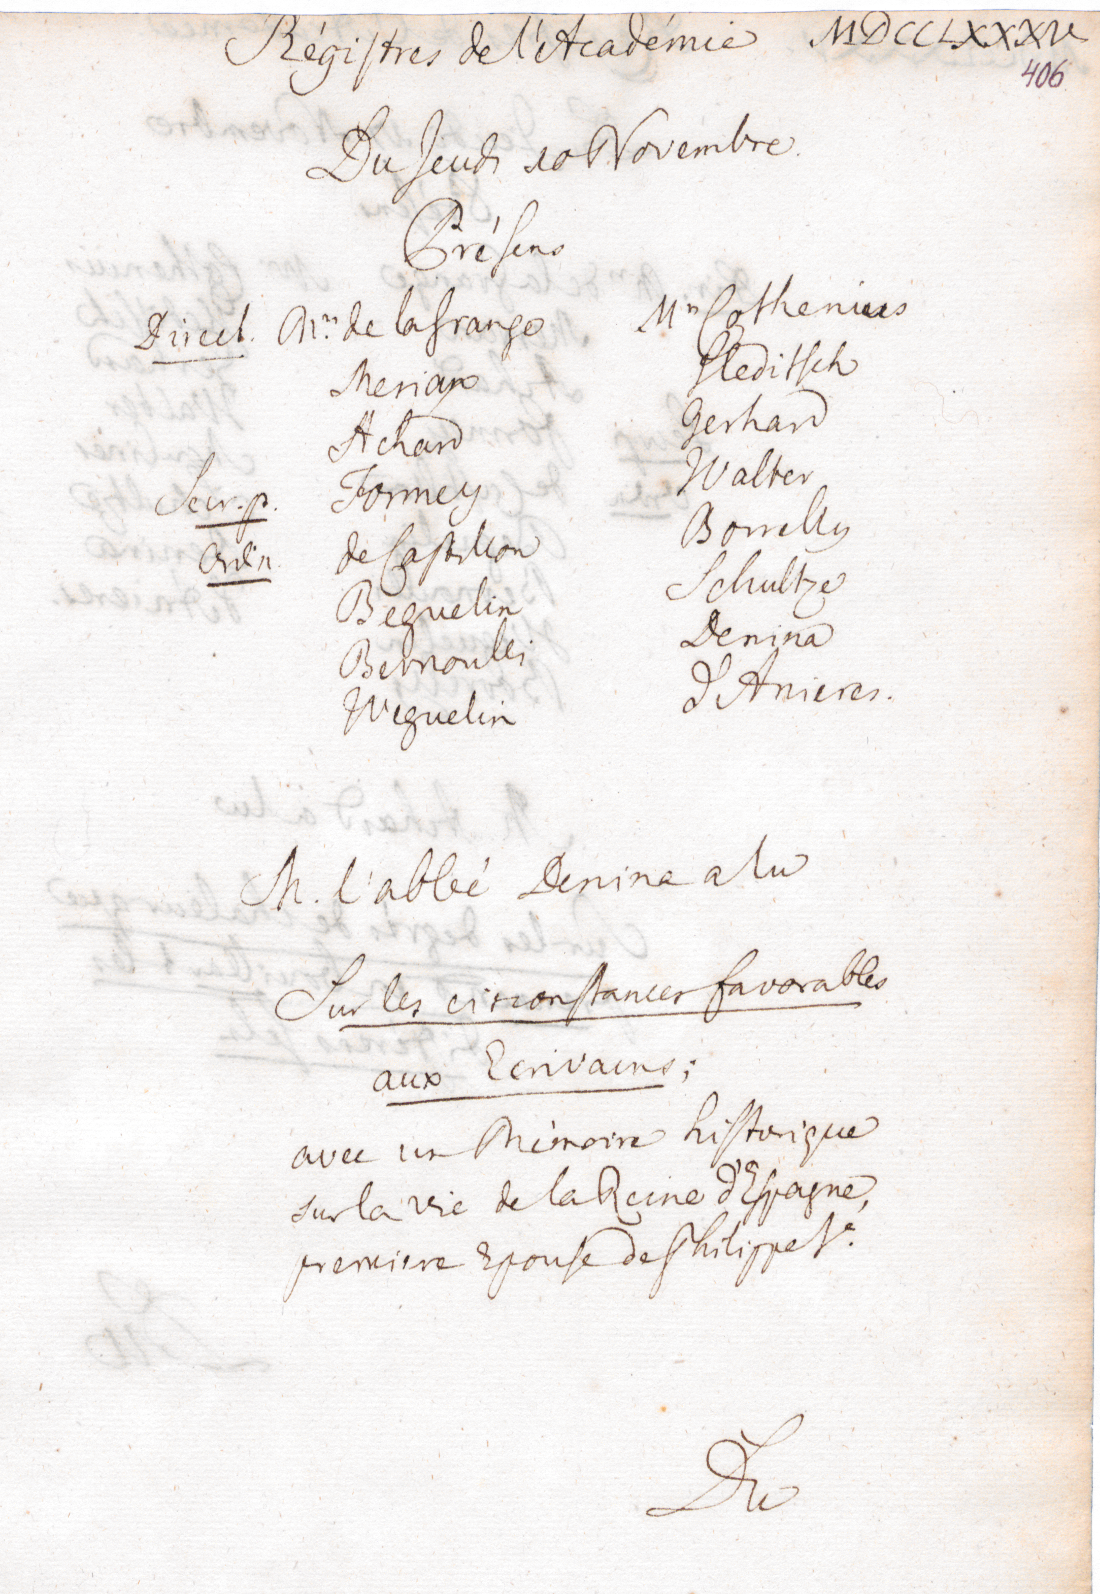 Régistres de l'Académie MDCCLXXXV
406
Du Jeudi 10 Novembre.
Présens
Direct. Mrs de la Grange Mrs Cothenius
Merian Gleditsch
Achard Gerhard
Secr. p. Formey Walter
Ordin. de Castillon Borrelly
Beguelin Schultze
Bernoulli Denina
Weguelin d'Anieres.
M. l'abbé Denina a lu
Sur les circonstances favorables
aux Ecrivains;
avec un Mémoire historique
sur la vie de la Reine d'Espagne,
premiere Epouse de Philippe
Du